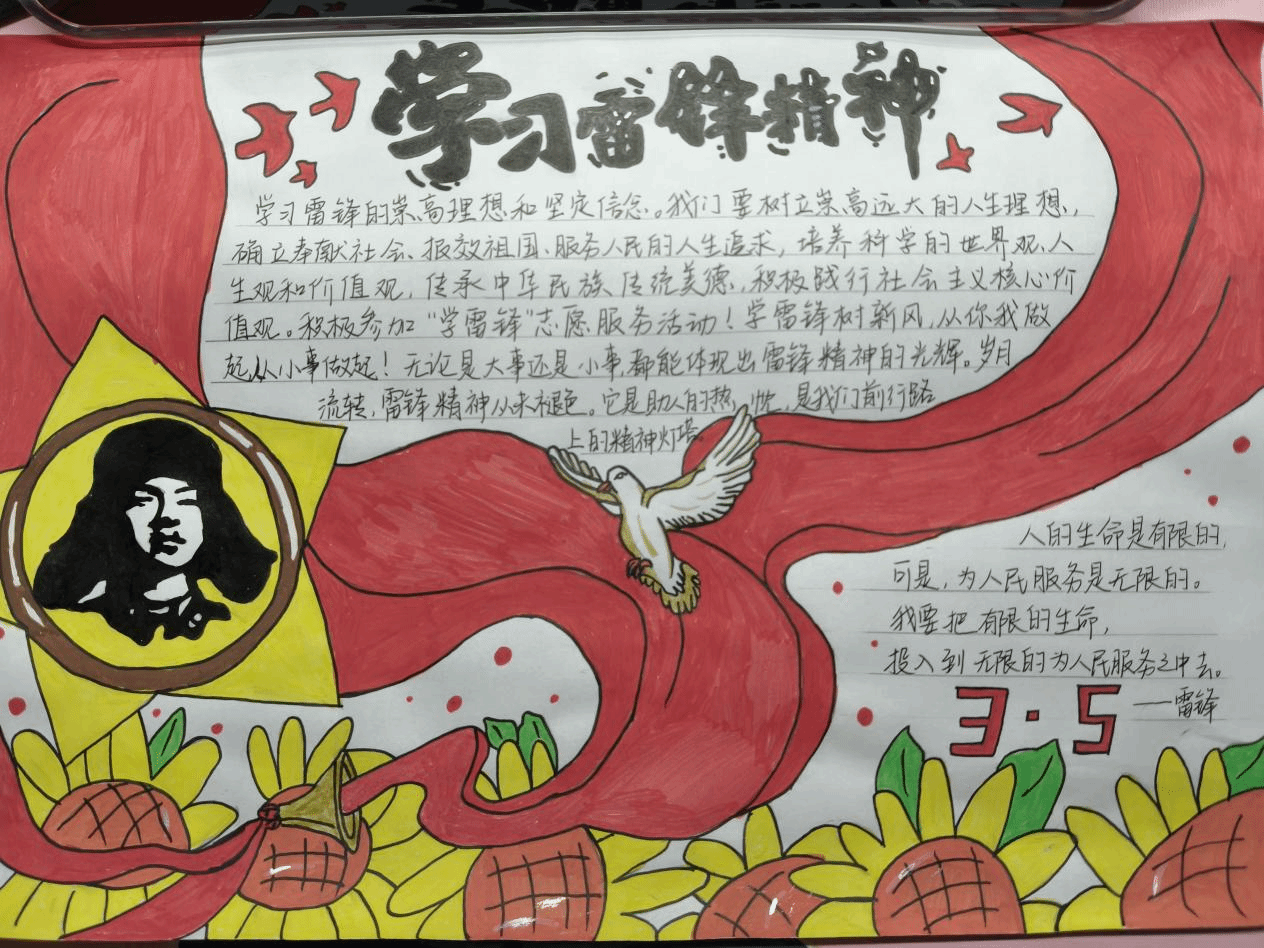 学习雷锋精神
学习雷锋的崇高理想和坚定信念。我们要树立崇高远大的人生理想，
确立奉献社会、报效祖国、服务人民的人生追求，培养科学的世界观、人
生观和价值观，传承中华民族传统美德，积极践行社会主义核心价
值观。积极参加“学雷锋”志愿服务活动！学雷锋树新风，从你我做
起从小事做起！无论是大事还是小事，都能体现出雷锋精神的光辉。岁月
流转，雷锋精神从未褪色。它是助人的热忱，是我们前行路
上的精神灯塔。
人的生命是有限的，
可是，为人民服务是无限的。
我要把有限的生命，
投入到无限的为人民服务之中去。
3·5
——雷锋